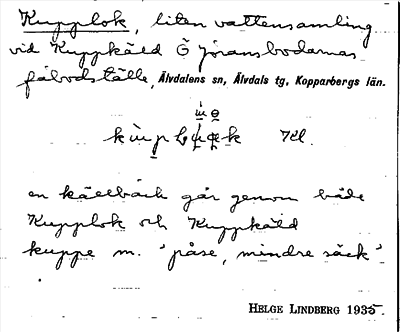 Kupplok, liten vattensamling
vid Kuppkäld Ö Jöransbodarnas
fäbodställe, Älvdalens sn, Älvdals tg, Kopparbergs län.
en källbäck går genom både
Kupplok och Kuppkäld
kuppe m. 'påse, mindre säck'
HELGE LINDBERG 1935.